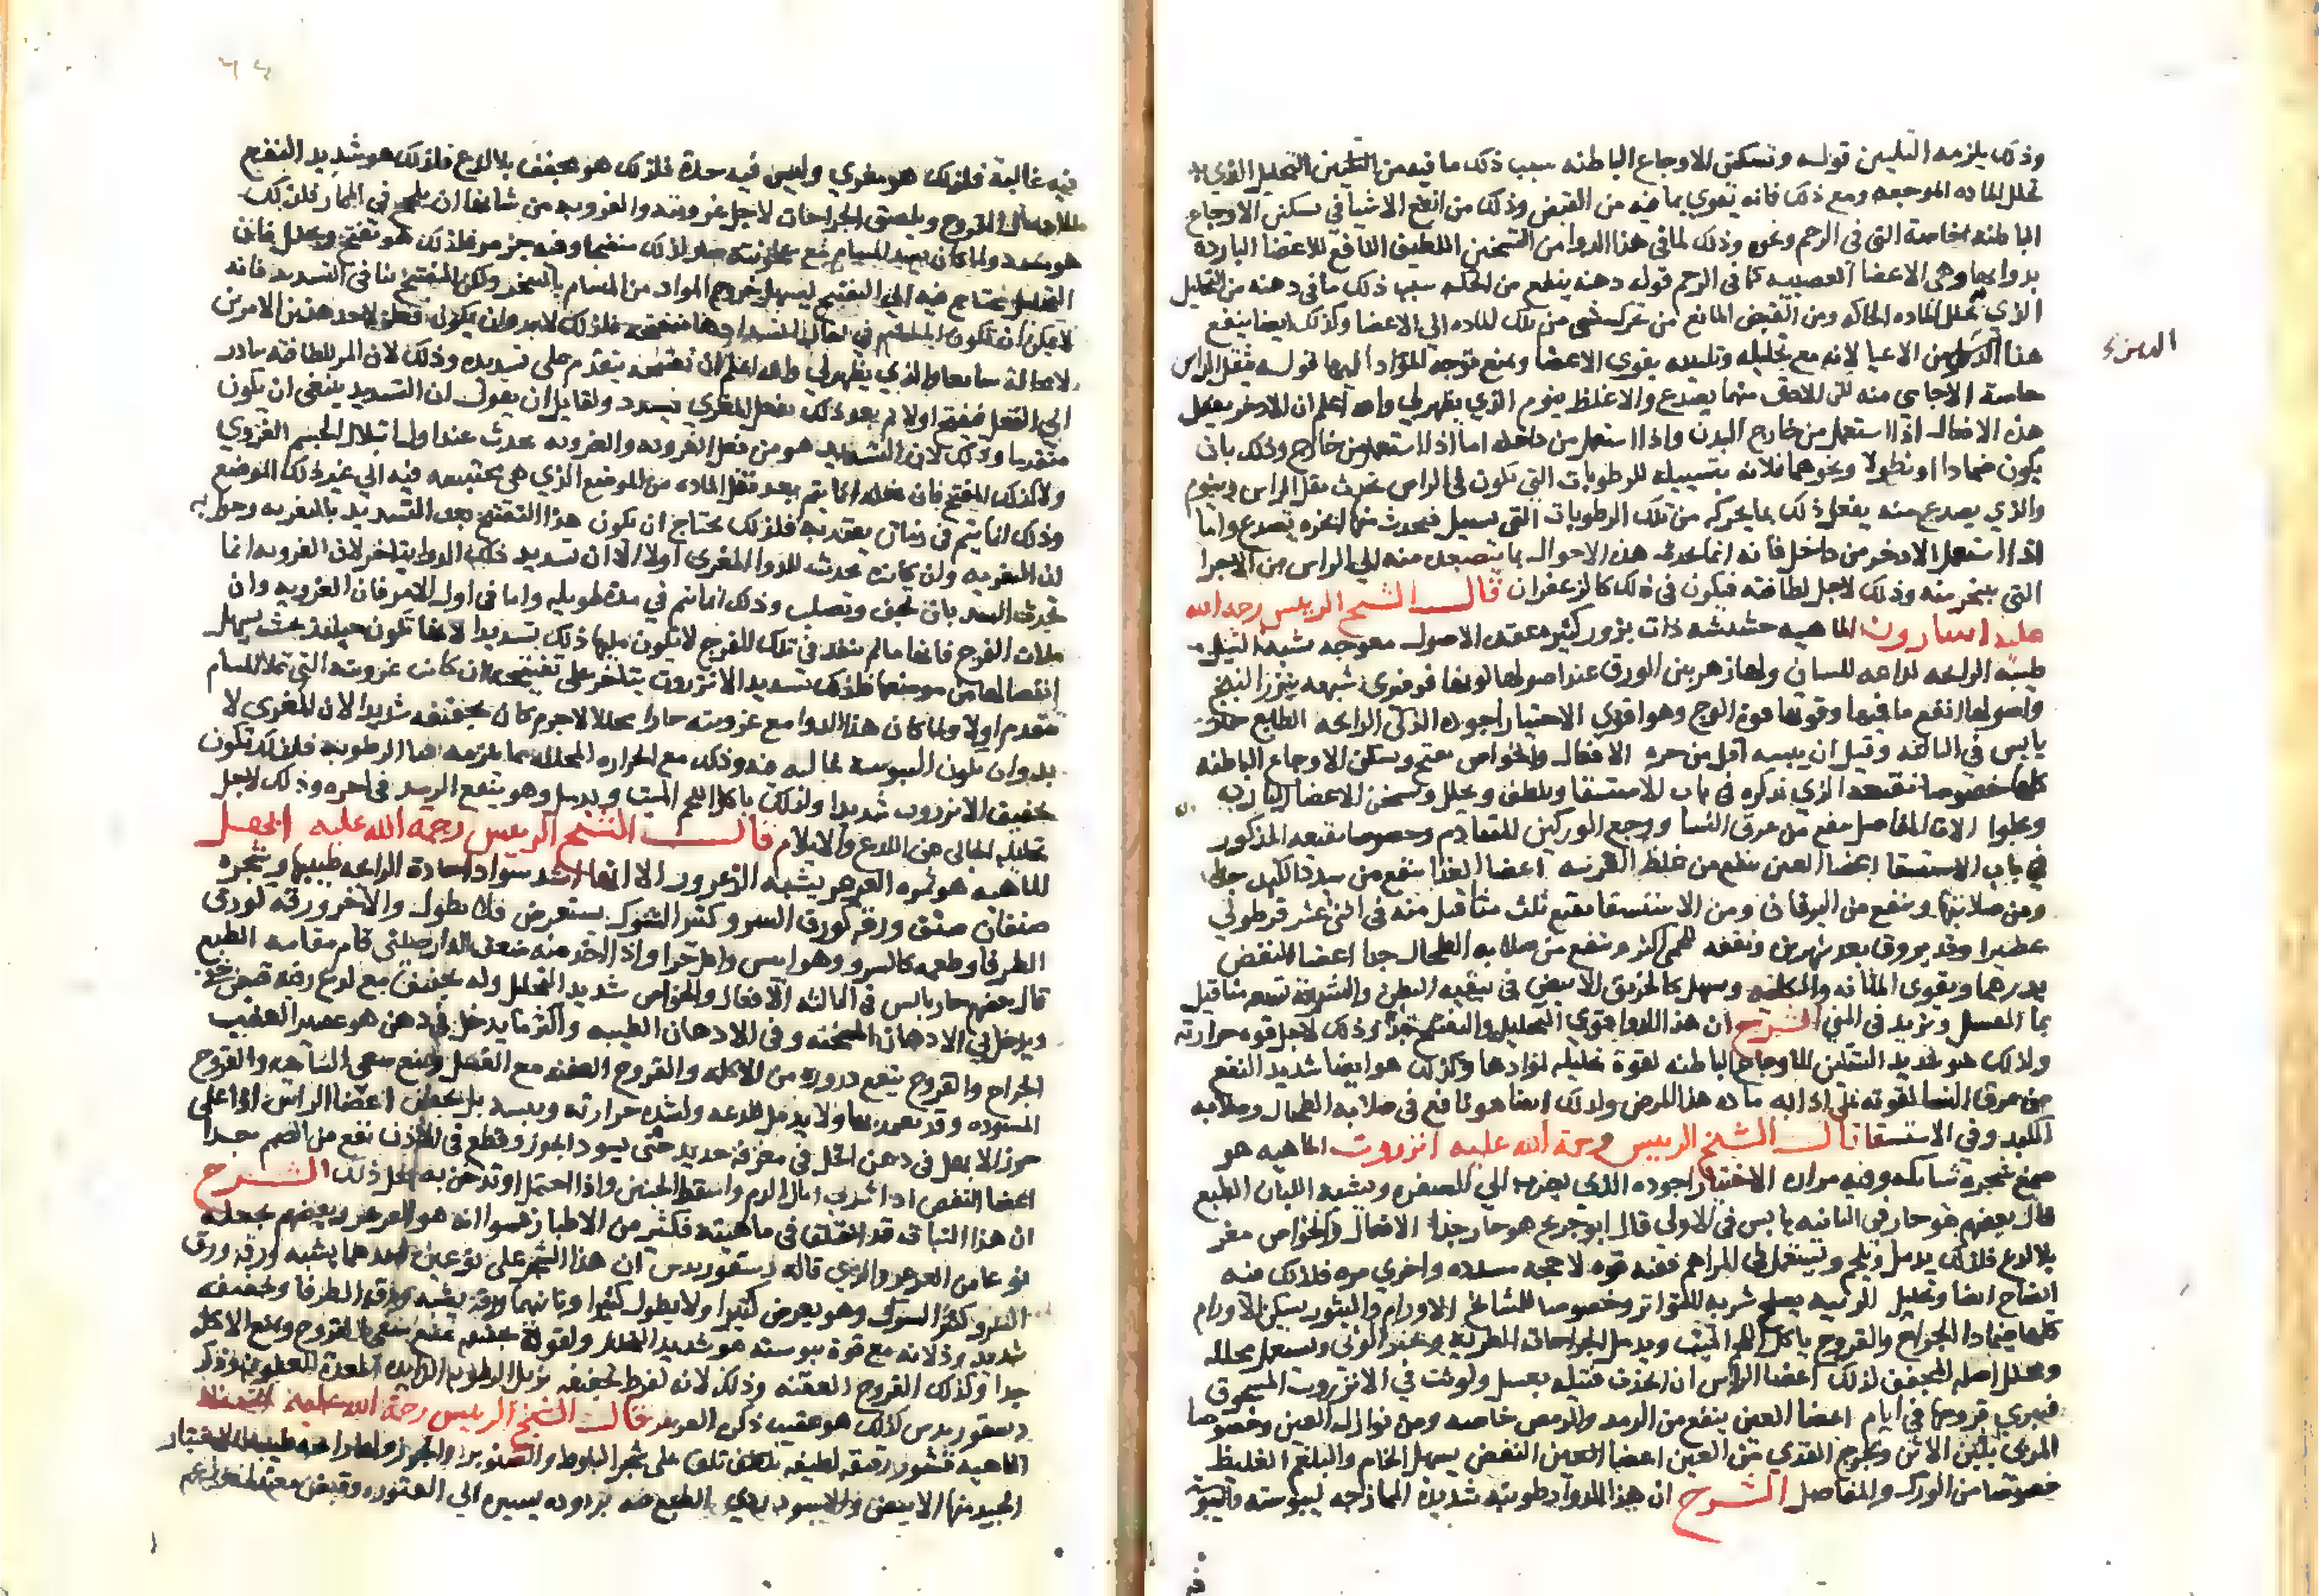 وذلك يلزمه التليين قوله وتسكن الاوجاع الباطنه سبب ذلك ما فيه من التليين التحليل الذي
تحلل الماده الموجعه ومع ذلك فانه يقوي بما فيه من القبض وذلك من انفع الاشيا في تسكن الاوجاع
الباطنه خاصة التي في الرحم ونحوه وذلك لما في هذا الدوا من التسخين اللطيف النافع للاعضا الباردة
وهي الاعضا العصبيه كما في الرحم قوله دهنه ينفع من الحكه سبب ذلك ما في دهنه من التحليل
الذي تحلل الماده الحاكه ومن القبض المانع من تحرك شي من تلك الماده الي الاعضا وكذلك ايضا ينفع
هذا من الاعيا لانه مع تحليله يقوي الاعضا ويمنع توجه المواد اليها قوله يثقل الراس
خاصة الاجامي منه يصدع والاغلظ ينوم الذي يظهر لي والله اعلم ان الاذخر يفعل
هذه الافعال اذا استعمل من خارج البدن واذا استعمل من داخل اما اذا استعمل من خارج وذلك بان
يكون ضمادا او نطولا ونحوهما فلانه بتسييله للرطوبات التي تكون في الراس يحدث ثقل الراس وينوم
والذي يصدع منه يفعل ذلك بما يحركه من تلك الرطوبات التي تسيل فيحدث منها ابخره تصدع واما
اذا استعمل الاذخر من داخل فانه انما يحدث هذه الاحوال بما يتصعد منه الي الراس من الاجزا
التي يتبخر منه وذلك لاجل لطافته فيكون في ذلك كالزعفران قال الشيخ الرييس رحمه الله
عليه اسارون الماهيه حشيشه ذات بزور كثيره عقد الاصول معوجه تشبه الثيل
طيبه الرايحه لذاعه للسان ولها زهر بين الورق عند اصولها لونها فرفيري شبيهه بزهر البنج
واصولها انفع ما فيها وقوتها قوة الوج وهو اقوي الاختيار اجوده الذكي الرايحه الطبع حار
يابس في الثالثه وقيل ان يبسه اقل من حره الافعال والخواص يفتح ويسكن الاوجاع الباطنه
كلها خصوصا نقيعه الذي نذكره في باب الاستسقا ويلطف ويحلل ويسخن الاعضا الباردة
الات المفاصل ينفع من عرق النسا ووجع الوركين المتقادم وخصوصا نقيعه المذكور
في باب الاستسقا اعضا العين ينفع من غلظ القرنيه اعضا الغذا ينفع من سدد الكبد جدا
ومن صلابتها وينفع من اليرقان ومن الاستسقا نقيع ثلث مثاقيل منه في اثني عشر قرطولي
عصيرا وقد يروق بعد شهرين ونفعه للحمي اكثر وينفع من صلابه الطحال جدا اعضا النفض
يدرهما ويقوي المثانه والكليه ويسهل كالخربق الابيض في تنقيه البطن والشربة سبعه مثاقيل
بما العسل ويزيد في المني الشرح ان هذا الدوا قوي التحليل والتفتيح جدا وذلك لاجل قوه حرارته
ولذلك هو شديد التسكين للاوجاع الباطنه لقوة تحليله لموادها وكذلك هو ايضا شديد النفع
من عرق النسا لقوته علي اذابه ماده هذا المرض ولذلك ايضا هو نافع في صلابه الطحال وصلابه
الكبد وفي الاستسقا قال الشيخ الرييس رحمة الله عليه انزروت الماهيه هو
صمغ شجرة شايكه وفيه مراره الاختيار اجوده الذي يضرب الي الصفره ويشبه اللبان الطبع
قال بعضهم هو حار في الثانيه يابس في الاولي قال ابو جريج هو حار جدا الافعال والخواص مغر
بلا لذع فلذلك يدمل ويلحم ويستعمل في المراهم ففيه قوه لاحجه مسدده واخري مره فلذلك فيه
انضاج ايضا وتحليل الزينه يصلع شربه المتواتر وخصوصا للمشايخ الاورام والبثور يسكن الاورام
كلها ضمادا الجراح والقروح ياكل اللحم الميت ويدمل الجراحات الطرية وعند الوثي ويستعمل محلله
ومحلل اصله المجفف لذلك اعضا الراس ان اتخذت فتيله بعسل ولوثت في الانزروت المسحوق
فيبري قروحها في ايام اعضا العين ينفع من الرمد والرمص خاصه ومن نوازل العين وخصوصا
المربي بلبن الاتن ويخرج القذي من العين اعضا النفض يسهل الخام والبلغم الغليظ
خصوصا من الورك والمفاصل الشرح ان هذا الدوا رطوبته شديدة الممازجه ليبوسته واليبوسة
فيه غالبة فلذلك هو مغري وليس فيه حدة فلذلك هو مجفف بلا لذع فلذلك هو شديد النفع
القروح ويلصق الجراحات لاجل غرويته والغرويه من شانها ان تلحج في المجار فلذلك
هو مسدد ولما كان يسد المسام مع حرارته صار لذلك منضجا وفيه جزء مر فلذلك هو يفتح ويحلل فان
التحليل يحتاج فيه الي التفتيح ليسهل خروج المواد من المسام بالتبخر ولكن التفتيح ينافي التسديد فانه
لا يمكن ان تكون المسام في حال انسدادها منفتحه فلذلك لا بد وان يكون فعله لاحد هذين الامرين
لا محالة سابقا والذي يظهر لي والله اعلم ان تفتيحه يتقدم علي تسديده وذلك لان المر للطافته يبادر
الي الفعل فيفتح اولا ثم بعد ذلك يفعل المغري فيسدد ولقايل ان يقول ان التسديد ينبغي ان يكون
متقدما وذلك لان التسديد هو من فعل الغرويه والغرويه تحدث عند اول ابتلال الجسم الغروي
ولا كذلك المفتح فان فعله انما يتم بعد نقل الماده من الموضع الذي هي محتبسه فيه الي غير ذلك الموضع
وذلك انما يتم في زمان يعتد به فلذلك يحتاج ان يكون هذا التفتيح بعد التسديد بالتغريه وجوابه
ان التغريه وان كانت تحدث للدوا المغري اولا الا ان تسديد ذلك الدوا يتاخر لان الغرويه انما
تحدث السدد بان تجف وتصلب وذلك انما يتم في مدة طويله واما في اول الامر فان الغرويه وان
ملات الفرج فانها ما لم تنعقد في تلك الفرج لا يكون ملها ذلك تسديدا لانها تكون حينئذ بحيث يسهل
انفصالها من موضعها فلذلك تسديد الانزروت يتاخر علي تفتيحه وان كانت غرويته التي تملا المسام
متقدم اولا ولما كان هذا الدوا مع غرويته حارا محللا لا جرم كان تجفيفه شديدا لان المغري لا
بد وان تكون اليبوسة غالبه فيه وذلك مع الحراره المحلله مما يلزمه فنا الرطوبه فلذلك يكون
تجفيف الانزروت شديدا ولذلك ياكل اللحم الميت ويدمل وهو ينفع الرمد في اخره وذلك لاجل
تحليله الخالي من اللذع والايلام قال الشيخ الرييس رحمة الله عليه ابهل
الماهيه هو ثمره العرعر يشبه الزعرور الا انها اشد سوادا حادة الرايحه طيبها وشجره
صنفان صنف ورقه كورق السرو كثير الشوك يستعرض فلا يطول والاخر ورقه كورق
الطرفا وطعمه كالسرو وهو ايبس واقل حرا واذا اخذ منه ضعف الدارصيني قام مقامه الطبع
قال بعضهم حار يابس في الثالثه الافعال والخواص شديد التحليل وله تجفيف مع لذع وفيه قبض خفي
ويدخل في الادهان المسخنه وفي الادهان الطيبه واكثر ما يدخل في دهن هو عصير العنب
الجراح والقروح ينفع ذروره من الاكله والقروح العفنه مع العسل ويمنع سعي الساعيه والقروح
المسوده وقد يضمد بها ولا يدمل للذعه ولشده حرارته ويبسه بل يجفف اعضا الراس اذا اغلي
جوز الابهل في دهن الخل في مغرفة حديد حتي يسود الجوز وقطر في الاذن نفع من الصمم جدا
اعضا النفض اذا شرب ابال الدم واسقط الجنين واذا احتمل او تدخن به فعل ذلك الشرح
ان هذا النبات قد اختلف في ماهيته فكثير من الاطبا زعموا انه هو العرعر وبعضهم يجعله
نوعا من العرعر والذي قاله ديسقوريدس ان هذا الشجر علي نوعين احدهما يشبه ورقه ورق
السرو كثير الشوك وهو يعرض كثيرا ولا يطول كثيرا وثانيهما ورقه يشبه ورق الطرفا وتجفيفه
شديد وذلانه مع قوة يبوسته هو شديد التحليل ولقوة تجفيفه يمنع سعي القروح ويمنع الاكله
جدا وكذلك القروح العفنه وذلك لانه لفرط تجفيفه يزيل الرطوبه الزايده المعدة للعفونه وذكر
ديسقوريدس كذلك هو عقيب ذكره العرعر قال الشيخ الرييس رحمة الله عليه اشنه
الماهيه قشور رقيقه لطيفه تلتف علي شجر البلوط والصنوبر والجوز ولها رايحه طيبه الاختيار
الجيد منها الابيض والاسود ردي الطبع فيه بروده يسيره الي الفتوره وقبض معتدل